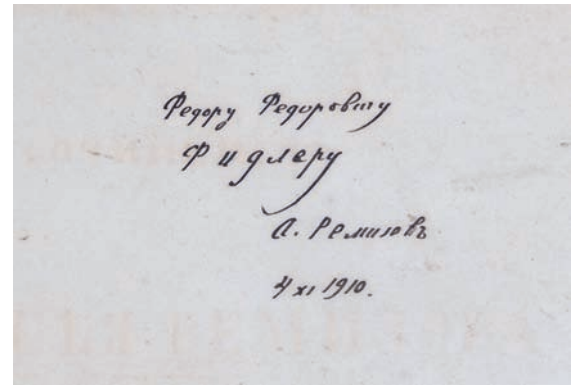 Федору Федоровичу
Фидлеру
А. Ремизовъ
4 XI 1910.